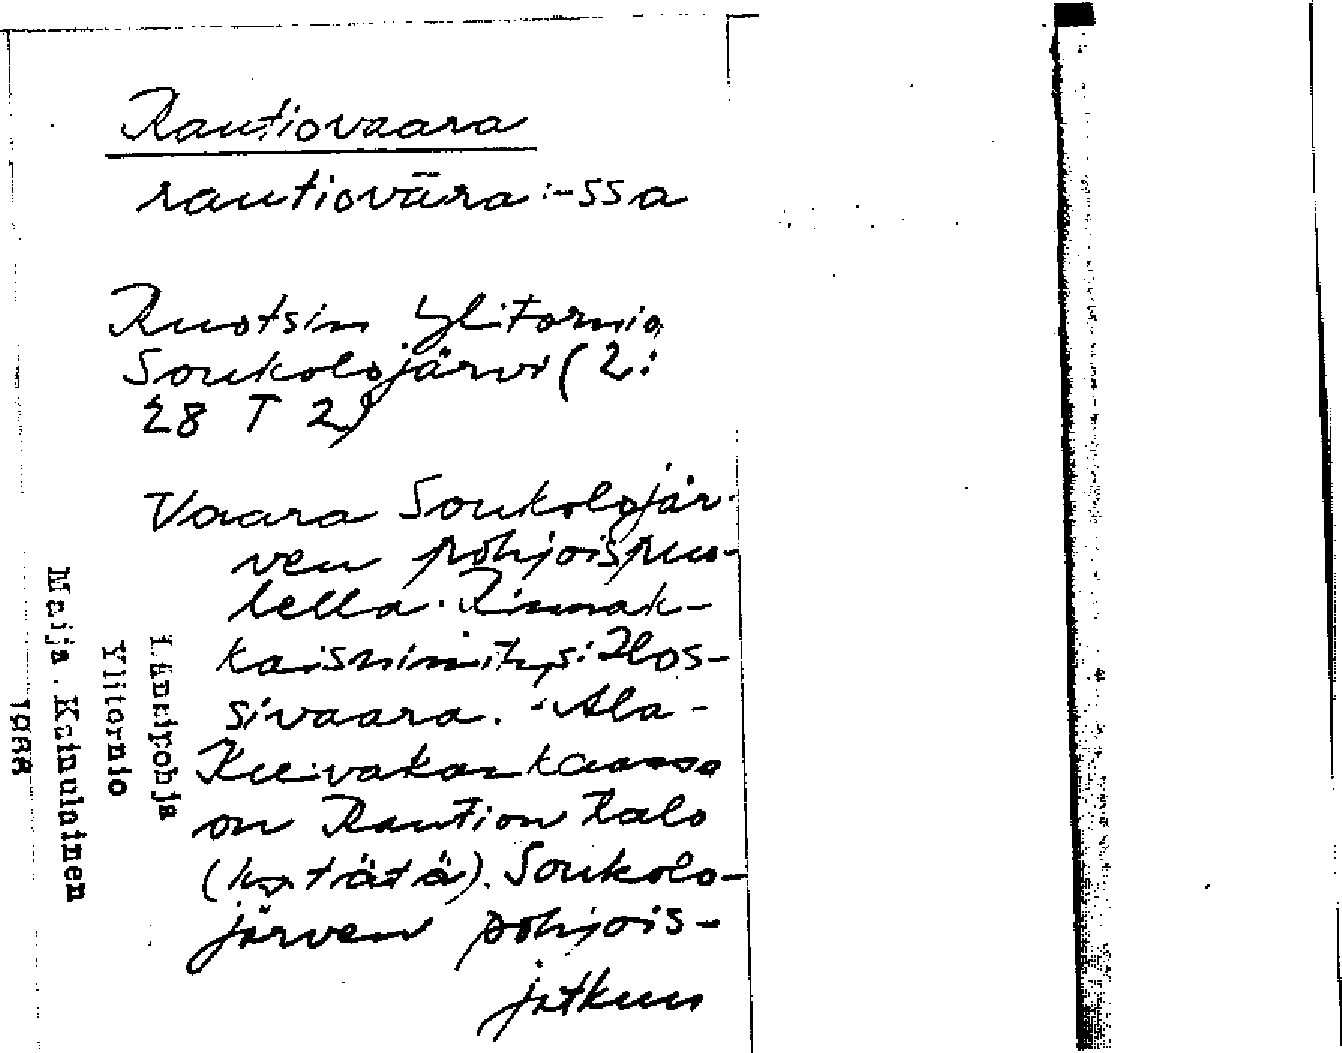 Rautiovaara
rautiovāra :-ssa
Ruotsin Ylitornio
Soukolojärvi (2:
28 T 2)
Vaara Soukolojär-
ven pohjoispuo-
lella. Rinnak-
kaisnimitys: Ilos-
sivaara. "Ala-
Kuivakankaassa
on Raution talo
(ks. tätä). Soukolo-
järven pohjois-
jatkuu
Länsipohja
Ylitornio
Maija Kainulainen
1988